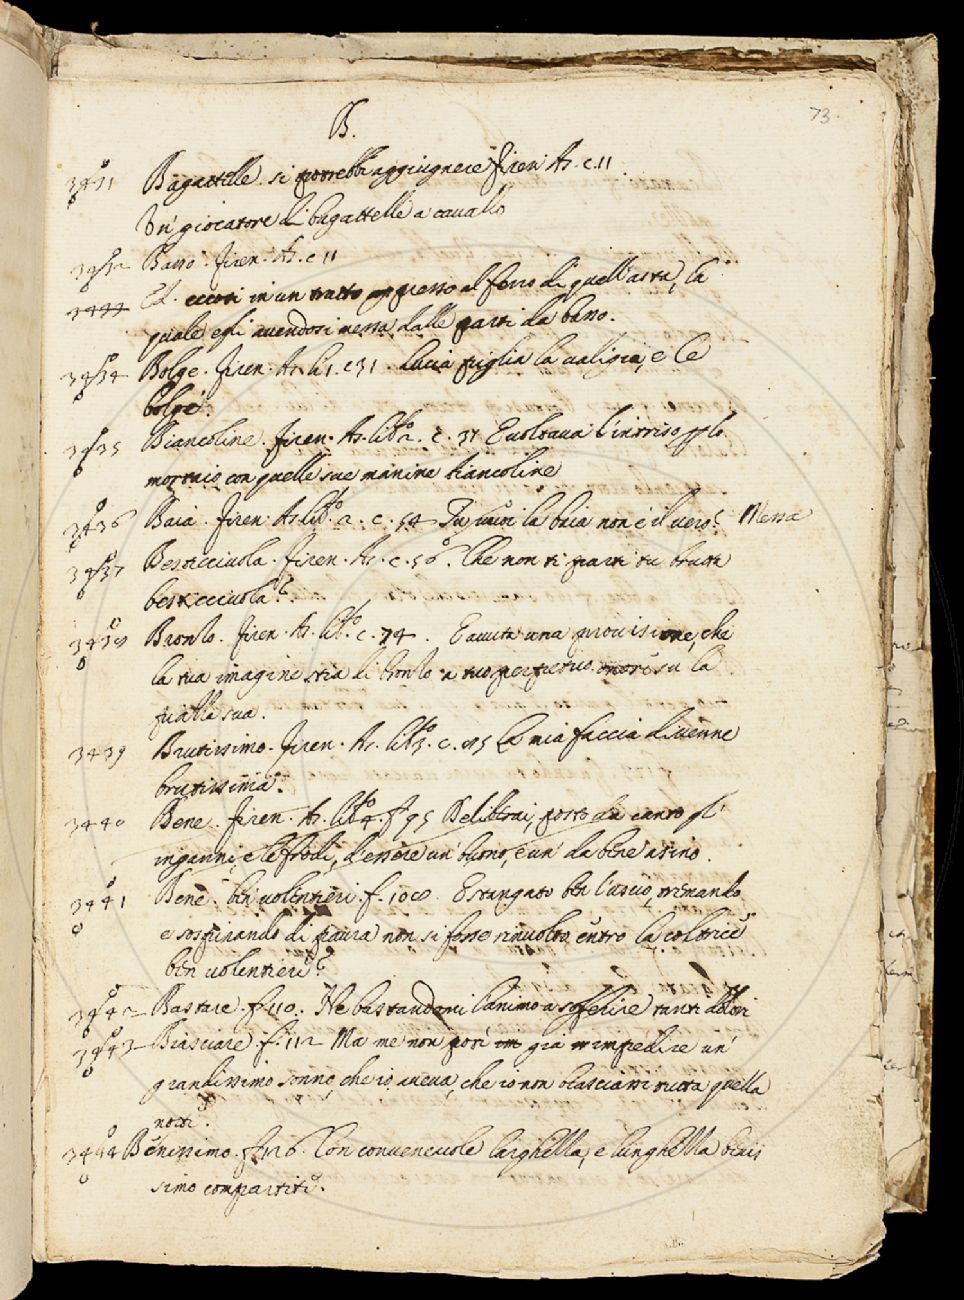 73.
B.
3431 Bagattelle. si potrebbe aggiugnere Firen. As. c. 11
Un' giocatore di bagattelle a cavallo
3432 Basso. Firen. As. c. 11
Ed. eccoti in un tratto appresso al ferro di quell'asta, la
quale egli avendosi messa dalle parti da basso.
3434 Bolge. Firen. As. li. 1. c. 31. Lucia piglia la valigia, e le
bolge.
3435 Biancoline. Firen. As. lib.o 2. c. 37 E voltava l'intriso p lo
mortaio con quelle sue manine biancoline
3436 Baia. Firen. As. lib.o 2. c. 54 Tu vuoi la baia non è il vero? Messa
3437 Besticciuola. Firen. As. c. 56. Che non ti parti tu brutta
besticciuola?
3438 Bronzo. Firen. As. lib.o c. 74. E avuta una provisione, che
la tua imagine stia di bronzo a tuo perpetuo onore su la
piazza sua.
3439 Bruttissimo. Firen. As. lib.o 3. c. 85 La mia faccia divenne
bruttissima.
3440 Bene. Firen. As. lib.o 4. f. 95 Deliberai, posto da canto gl'
inganni, e le frodi, d'essere un' buono, e un' da bene asino.
3441 Bene. ben volentieri. f. 100. E stangato ben l'uscio, tremando
e sospirando di paura non si fosse rinvolto entro la coltrice
ben volentieri?
3442 Bastare. f. 110. Ne bastandomi l'animo a sofferire tanti dolori
3443 Biasciare. f. 112 Ma me non potè già impedire un'
grandissimo sonno, che io aveva, che io non biasciassi tutta quella
notte.
3444 Benissimo. f. 126. Con convenevole larghezza, e lunghezza benis
simo compartiti.